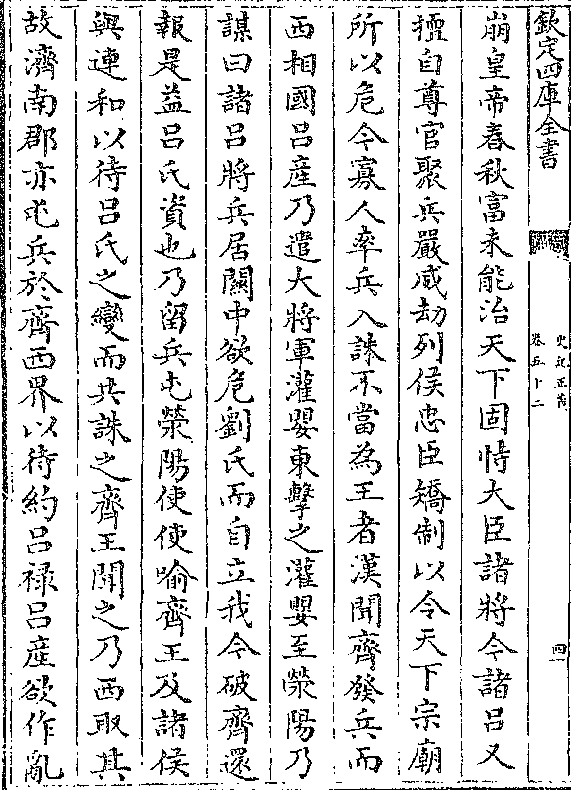 欽定四庫全書
史記正義
卷五十二
四
崩皇帝春秋富未能治天下固恃大臣諸將今諸呂又
擅自尊官聚兵嚴威劫列侯忠臣矯制以令天下宗廟
所以危今寡人率兵入誅不當為王者漢聞齊發兵而
西相國呂産乃遣大將軍灌嬰東擊之灌嬰至滎陽乃
謀曰諸呂將兵居關中欲危劉氏而自立我今破齊還
報是益呂氏資也乃留兵屯滎陽使使喻齊王及諸侯
與連和以待呂氏之變而共誅之齊王聞之乃西取其
故濟南郡亦屯兵於齊西界以待約呂祿呂産欲作亂